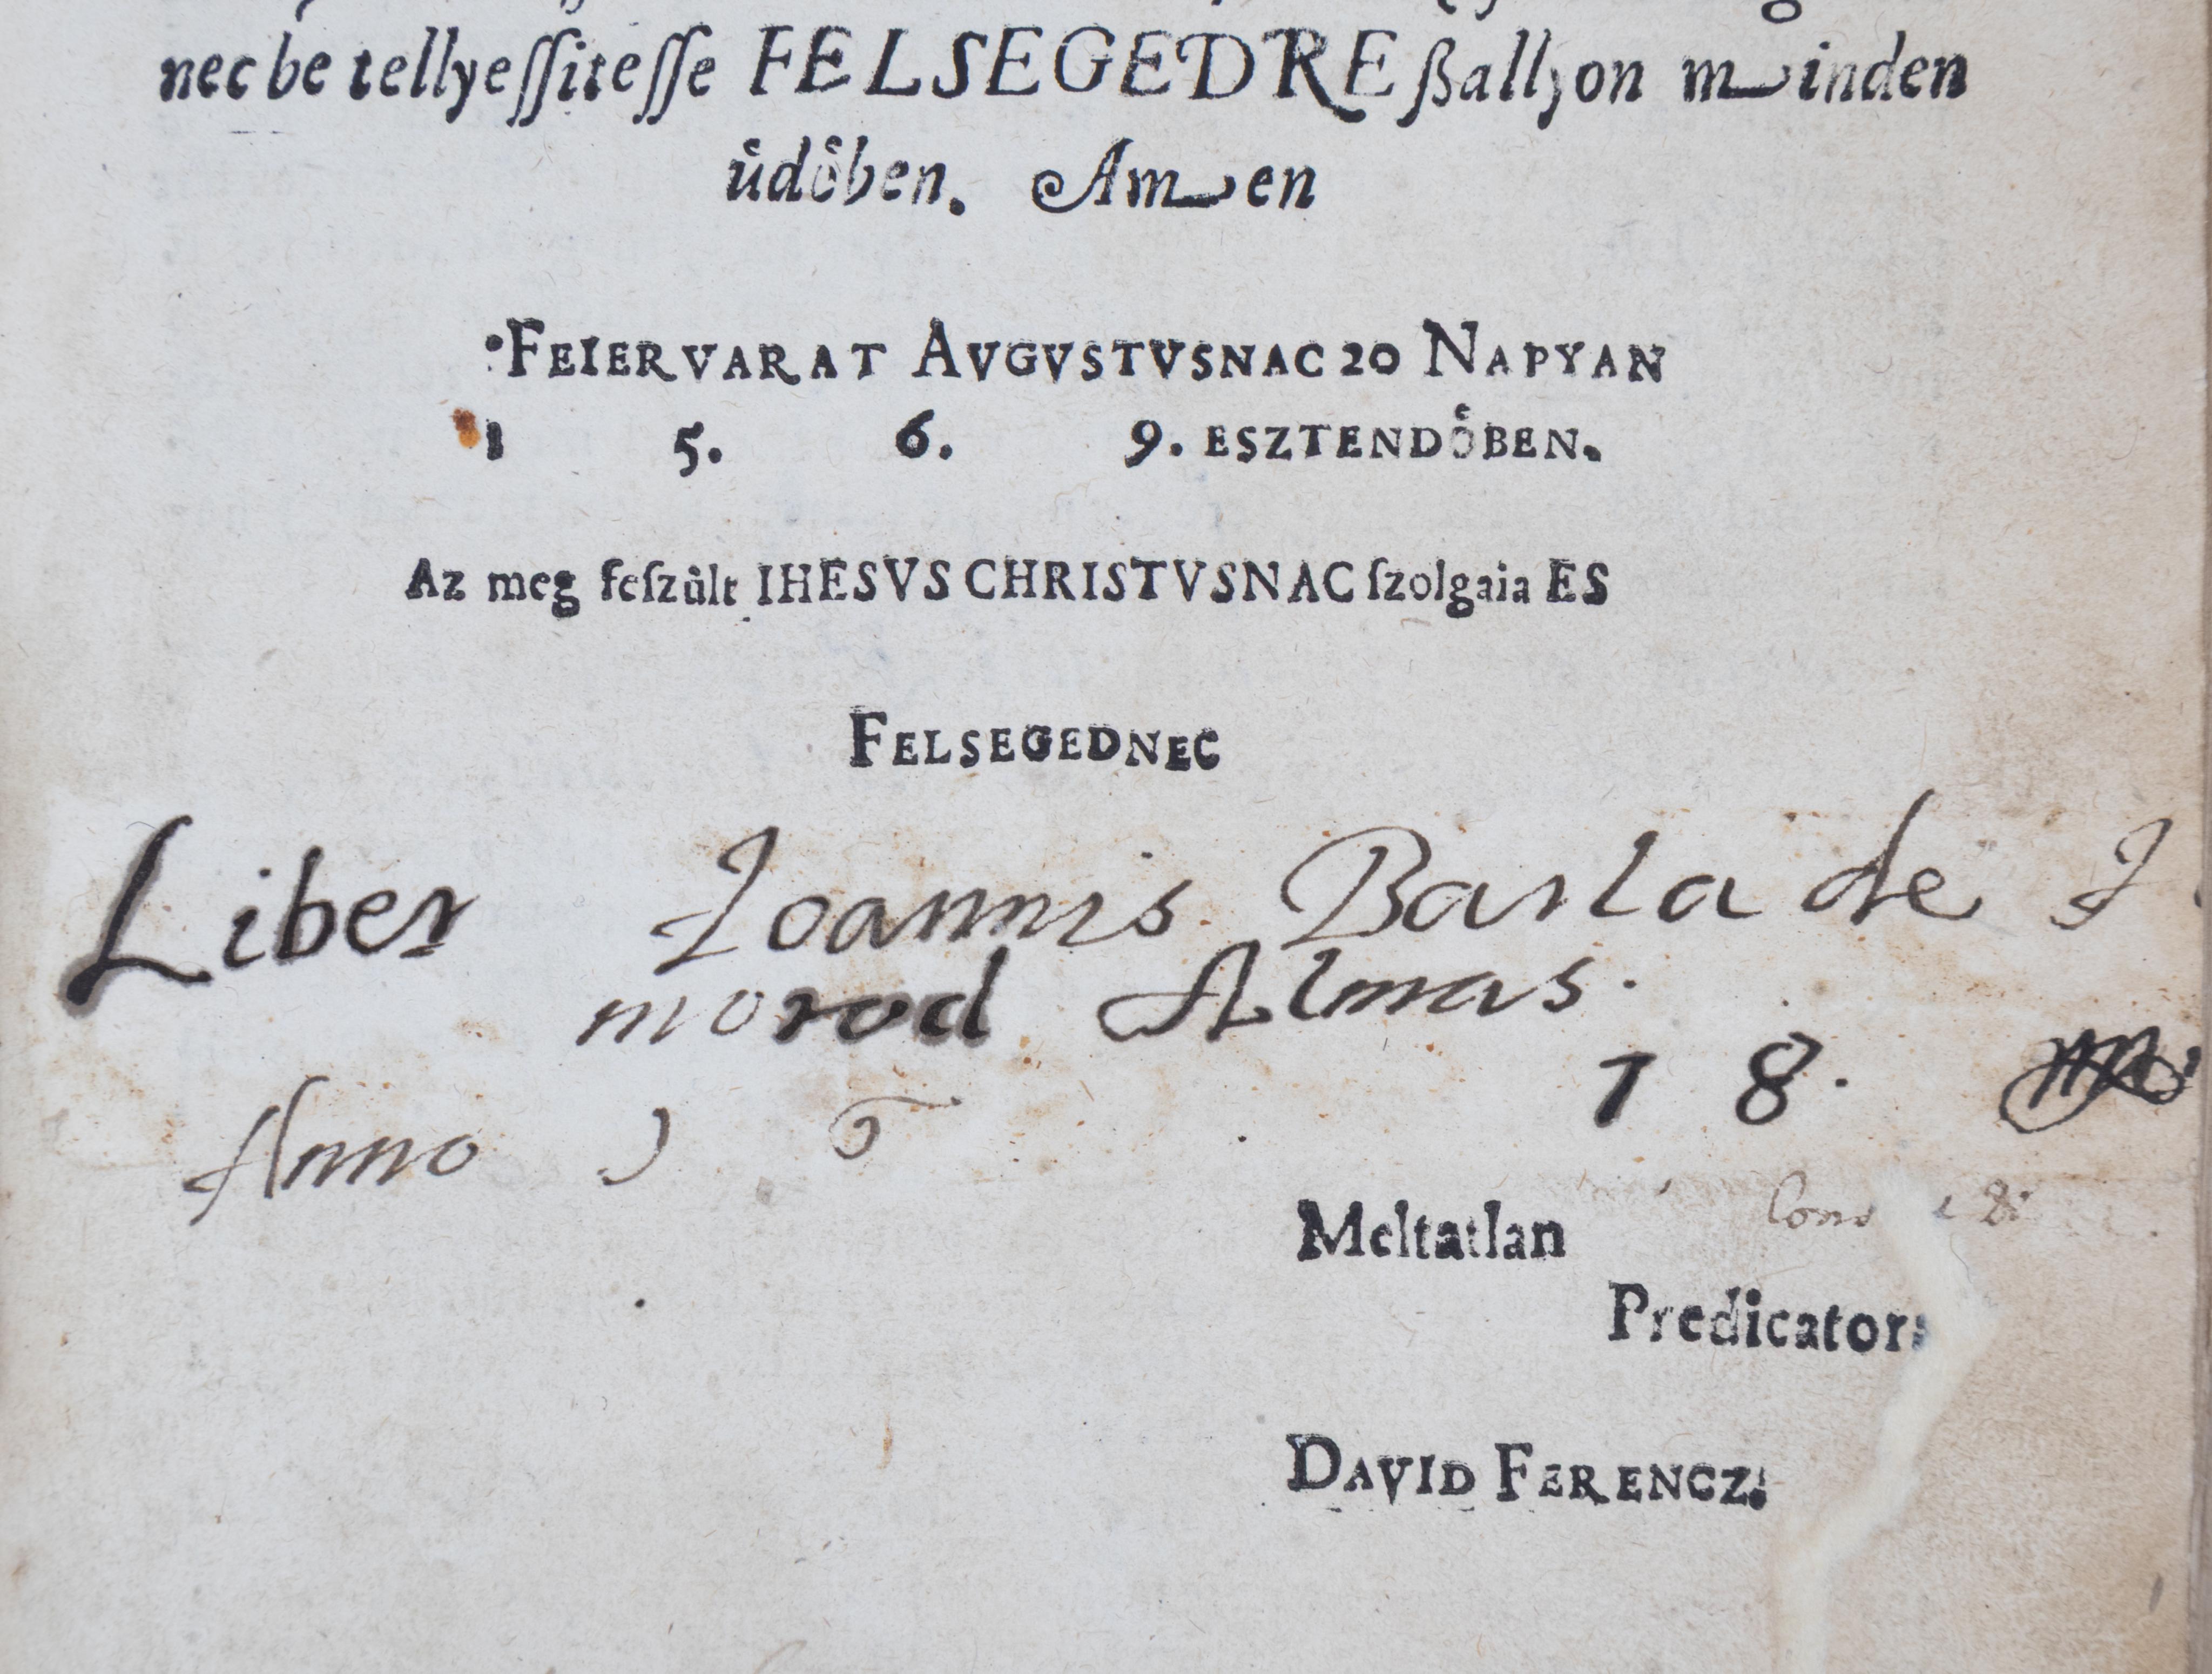 nec be tellyeſſiteſſe FELSEGEDRE ßallyon minden
uͤdoͤben. Amen
FEIERVARAT AVGVSTVSNAC 20 NAPYAN
1 5. 6. 9. ESZTENDOͤBEN.
Az meg feſzuͤlt IHESVS CHRISTVSNAC ſzolgaia ES
FELSEGEDNEC
Liber Joannis Barla de
morod Almas.
Anno 1 6 7 8.
Meltatlan
Predicatora
DAVID FERENCZ.